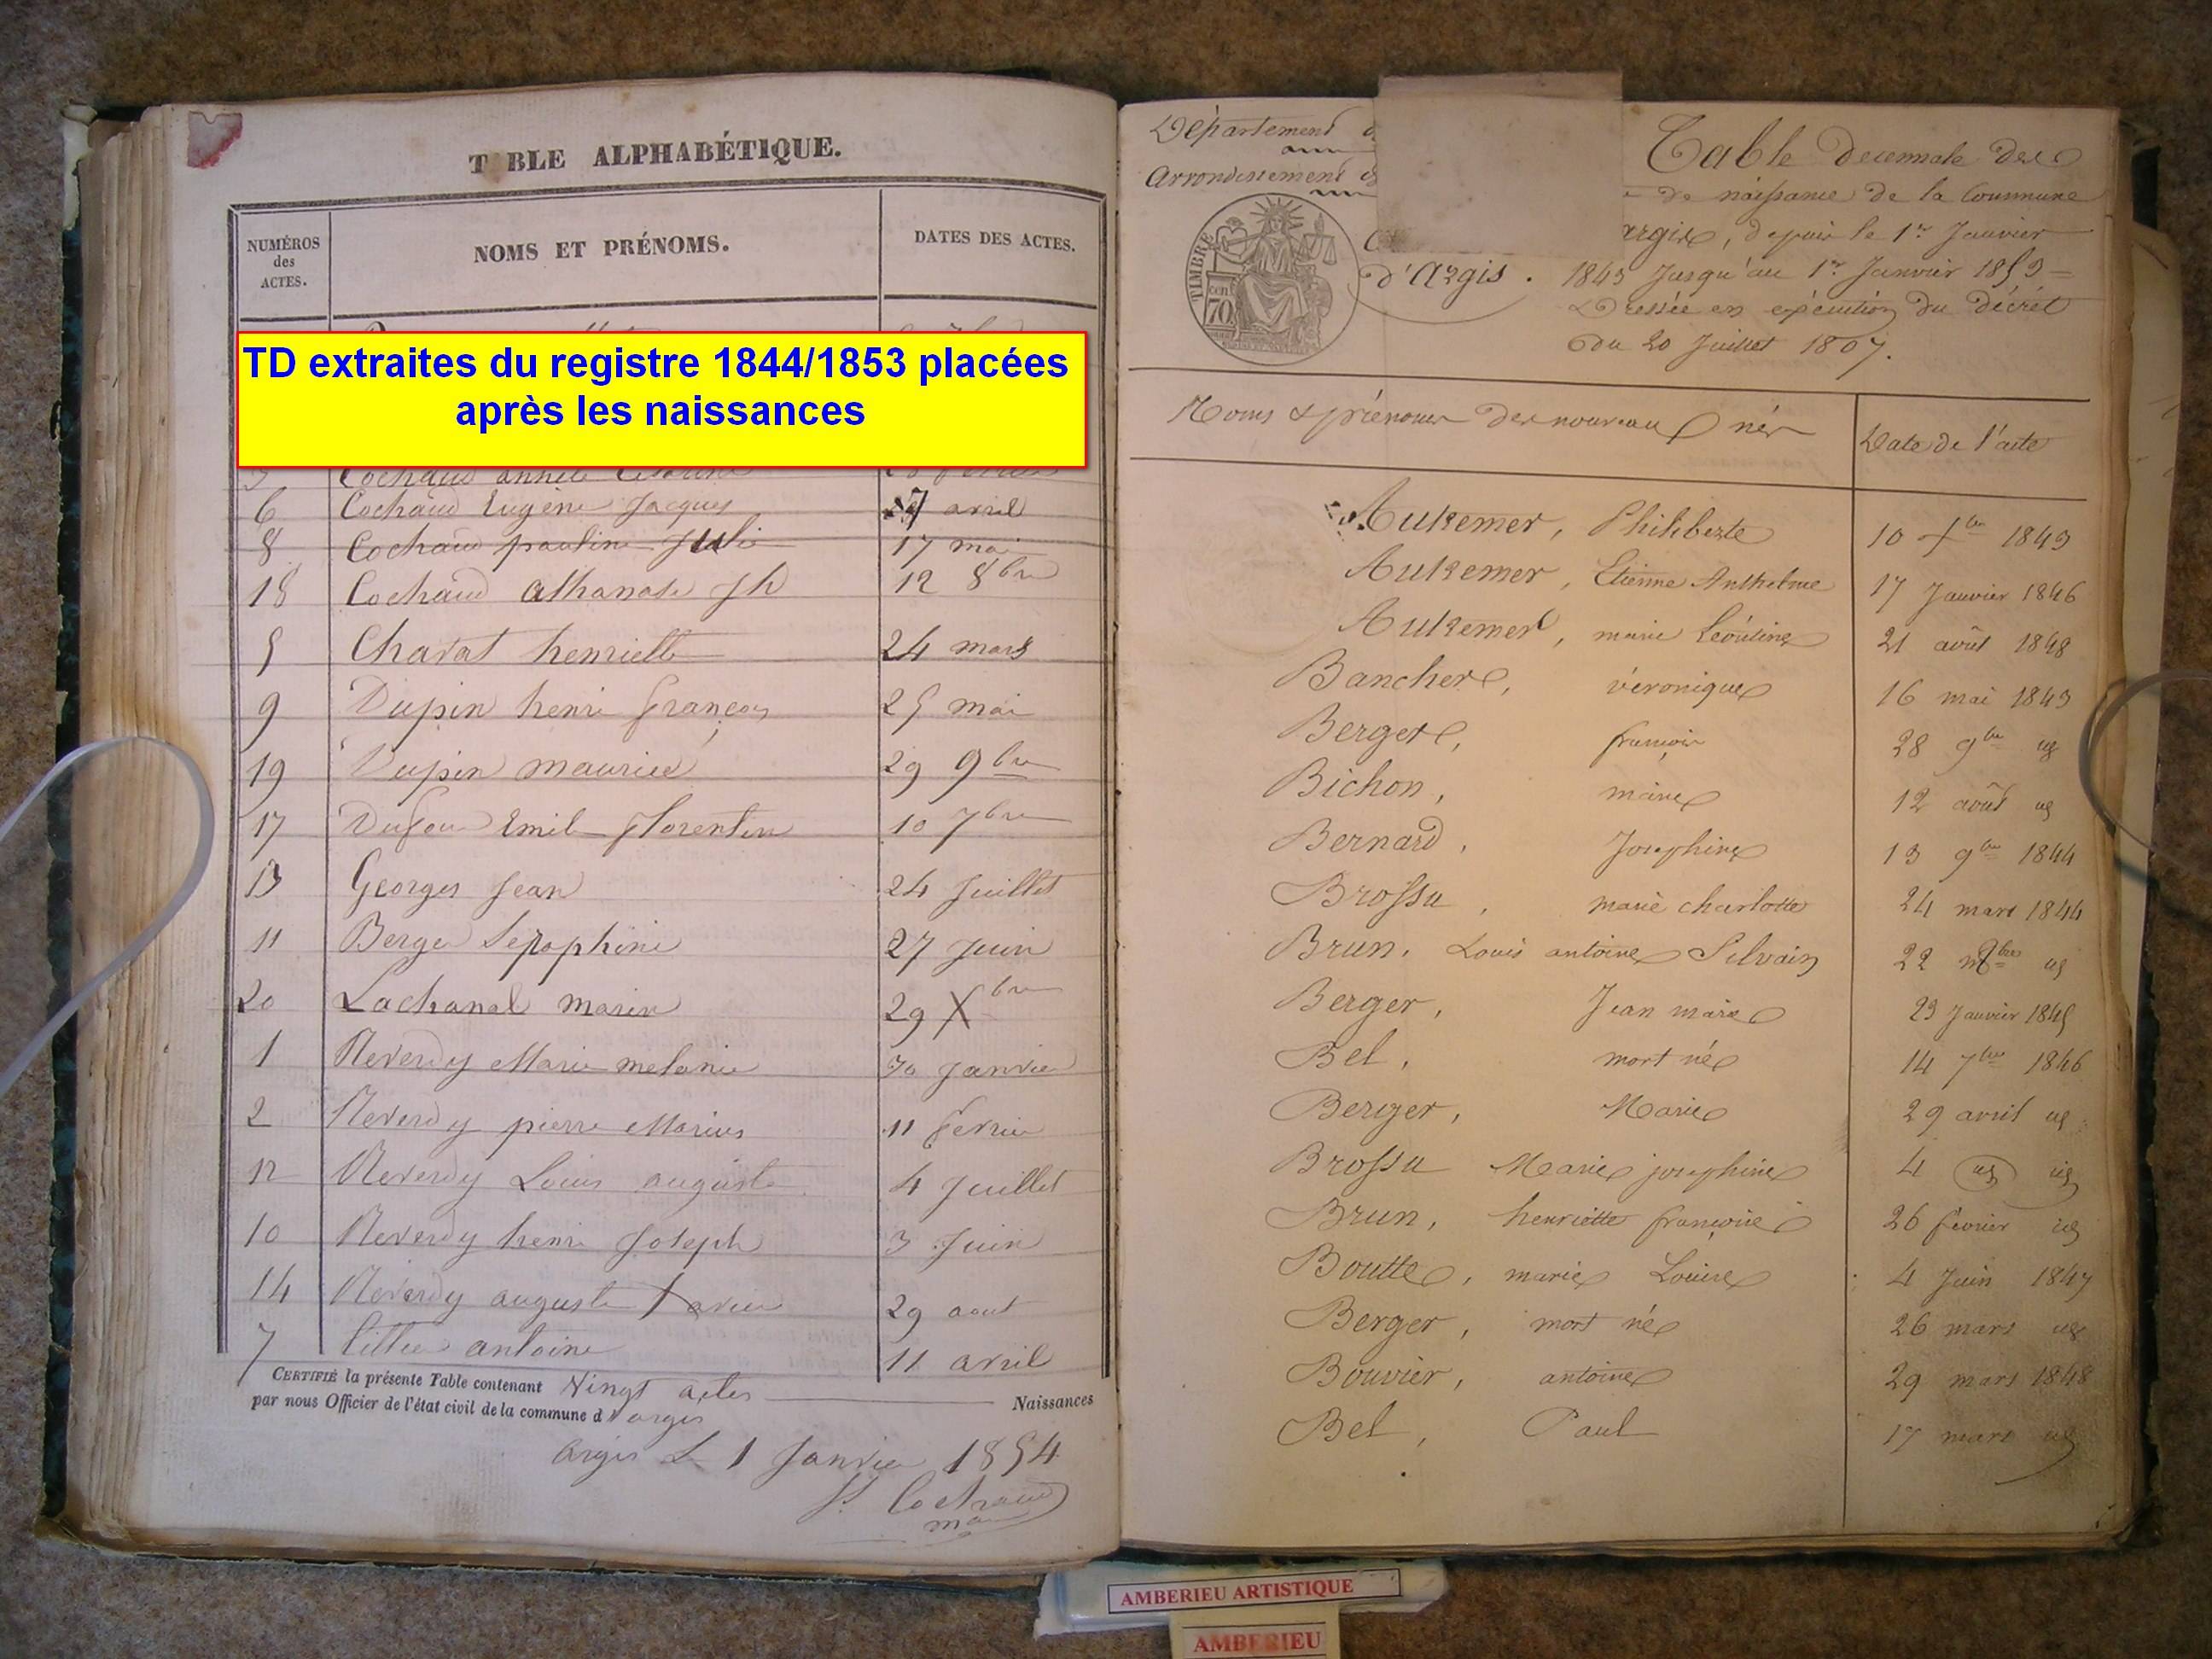 TABLE ALPHABÉTIQUE.
NUMÉROS des ACTES.
NOMS ET PRÉNOMS.
DATES DES ACTES.
TD extraites du registre 1844/1853 placées
après les naissances
6 Cochaud Eugène Jacques 27 avril
8 Cochaud pauline Julie 17 mai
18 Cochaud athanase Jh 12 8bre
5 Charat henriette 24 mars
9 Dupin henri françois 25 mai
19 Dupin maurice 29 9bre
17 Dufour Emile florentin 10 7bre
13 Georges Jean 24 Juillet
11 Berger Séraphine 27 Juin
20 Lachanal marin 29 Xbre
1 Reverdy Marie melanie 30 Janvier
2 Reverdy pierre Marius 11 fevrier
12 Reverdy Louis auguste 4 Juillet
10 Reverdy henri Joseph 3 Juin
14 Reverdy auguste Xavier 29 aout
7 antoine 11 avril
CERTIFIÉ la présente Table contenant Vingt actes Naissances
par nous Officier de l'état civil de la commune d'argis
Argis Le 1 Janvier 1854
Cochaud
Département
Arrondissement
TIMBRE
70
d'Argis.
Table decennale des
de naissance de la Commune
argis, depuis le 1er Janvier
1843 Jusqu'au 1er Janvier 1853
Dressée en exécution du décret
du 20 Juillet 1807.
Noms & prénoms des nouveau nés
Date de l'acte
Aukemer, Philiberte 10 1843
Aukemer, Etienne Anthelme 17 Janvier 1846
Aukemer, marie Léontine 21 août 1848
Bancher, véronique 16 mai 1843
Berger, françois 28 9bre id
Bichon, marie 12 août id
Bernard, Josephine 13 9bre 1844
Brossu, marie charlotte 24 mars 1844
Brun, Louis antoine Silvain 22 id
Berger, Jean marie 23 Janvier 1845
Bel, mort né 14 7bre 1846
Berger, Marie 29 avril id
Brossu Marie josephine 4 id id
Brun, henriette françoise 26 février id
Boutte, marie Louise 4 Juin 1847
Berger, mort né 26 mars id
Bouvier, antoine 29 mars 1848
Bel, Paul 17 mars id
AMBERIEU ARTISTIQUE
AMBERIEU